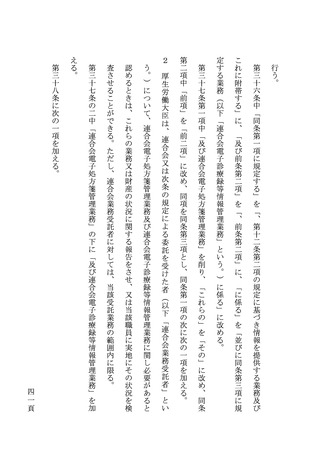 行う。
第三十六条中「同条第一項に規定する」を「、第十二条第二項の規定に基づき情報を提供する業務及び
これに附帯する」に、「及び前条第二項」を「、前条第二項」に、「に係る」を「並びに同条第三項に規
定する業務（以下「連合会電子診療録等情報管理業務」という。）に係る」に改める。
第三十七条第一項中「及び連合会電子処方箋管理業務」を削り、「これらの」を「その」に改め、同条
第二項中「前項」を「前二項」に改め、同項を同条第三項とし、同条第一項の次に次の一項を加える。
２　厚生労働大臣は、連合会又は次条の規定による委託を受けた者（以下「連合会業務受託者」とい
う。）について、連合会電子処方箋管理業務及び連合会電子診療録等情報管理業務に関し必要があると
認めるときは、これらの業務又は財産の状況に関する報告をさせ、又は当該職員に実地にその状況を検
査させることができる。ただし、連合会業務受託者に対しては、当該受託業務の範囲内に限る。
第三十七条の二中「連合会電子処方箋管理業務」の下に「及び連合会電子診療録等情報管理業務」を加
える。
第三十八条に次の一項を加える。
四一頁